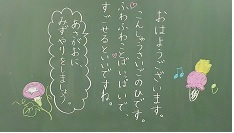 おはようございます。
こんしゅうさいごのひです。
ふわふわことばいっぱいで
すごせるといいですね。
あさがおに、
みずやりをしましょう。